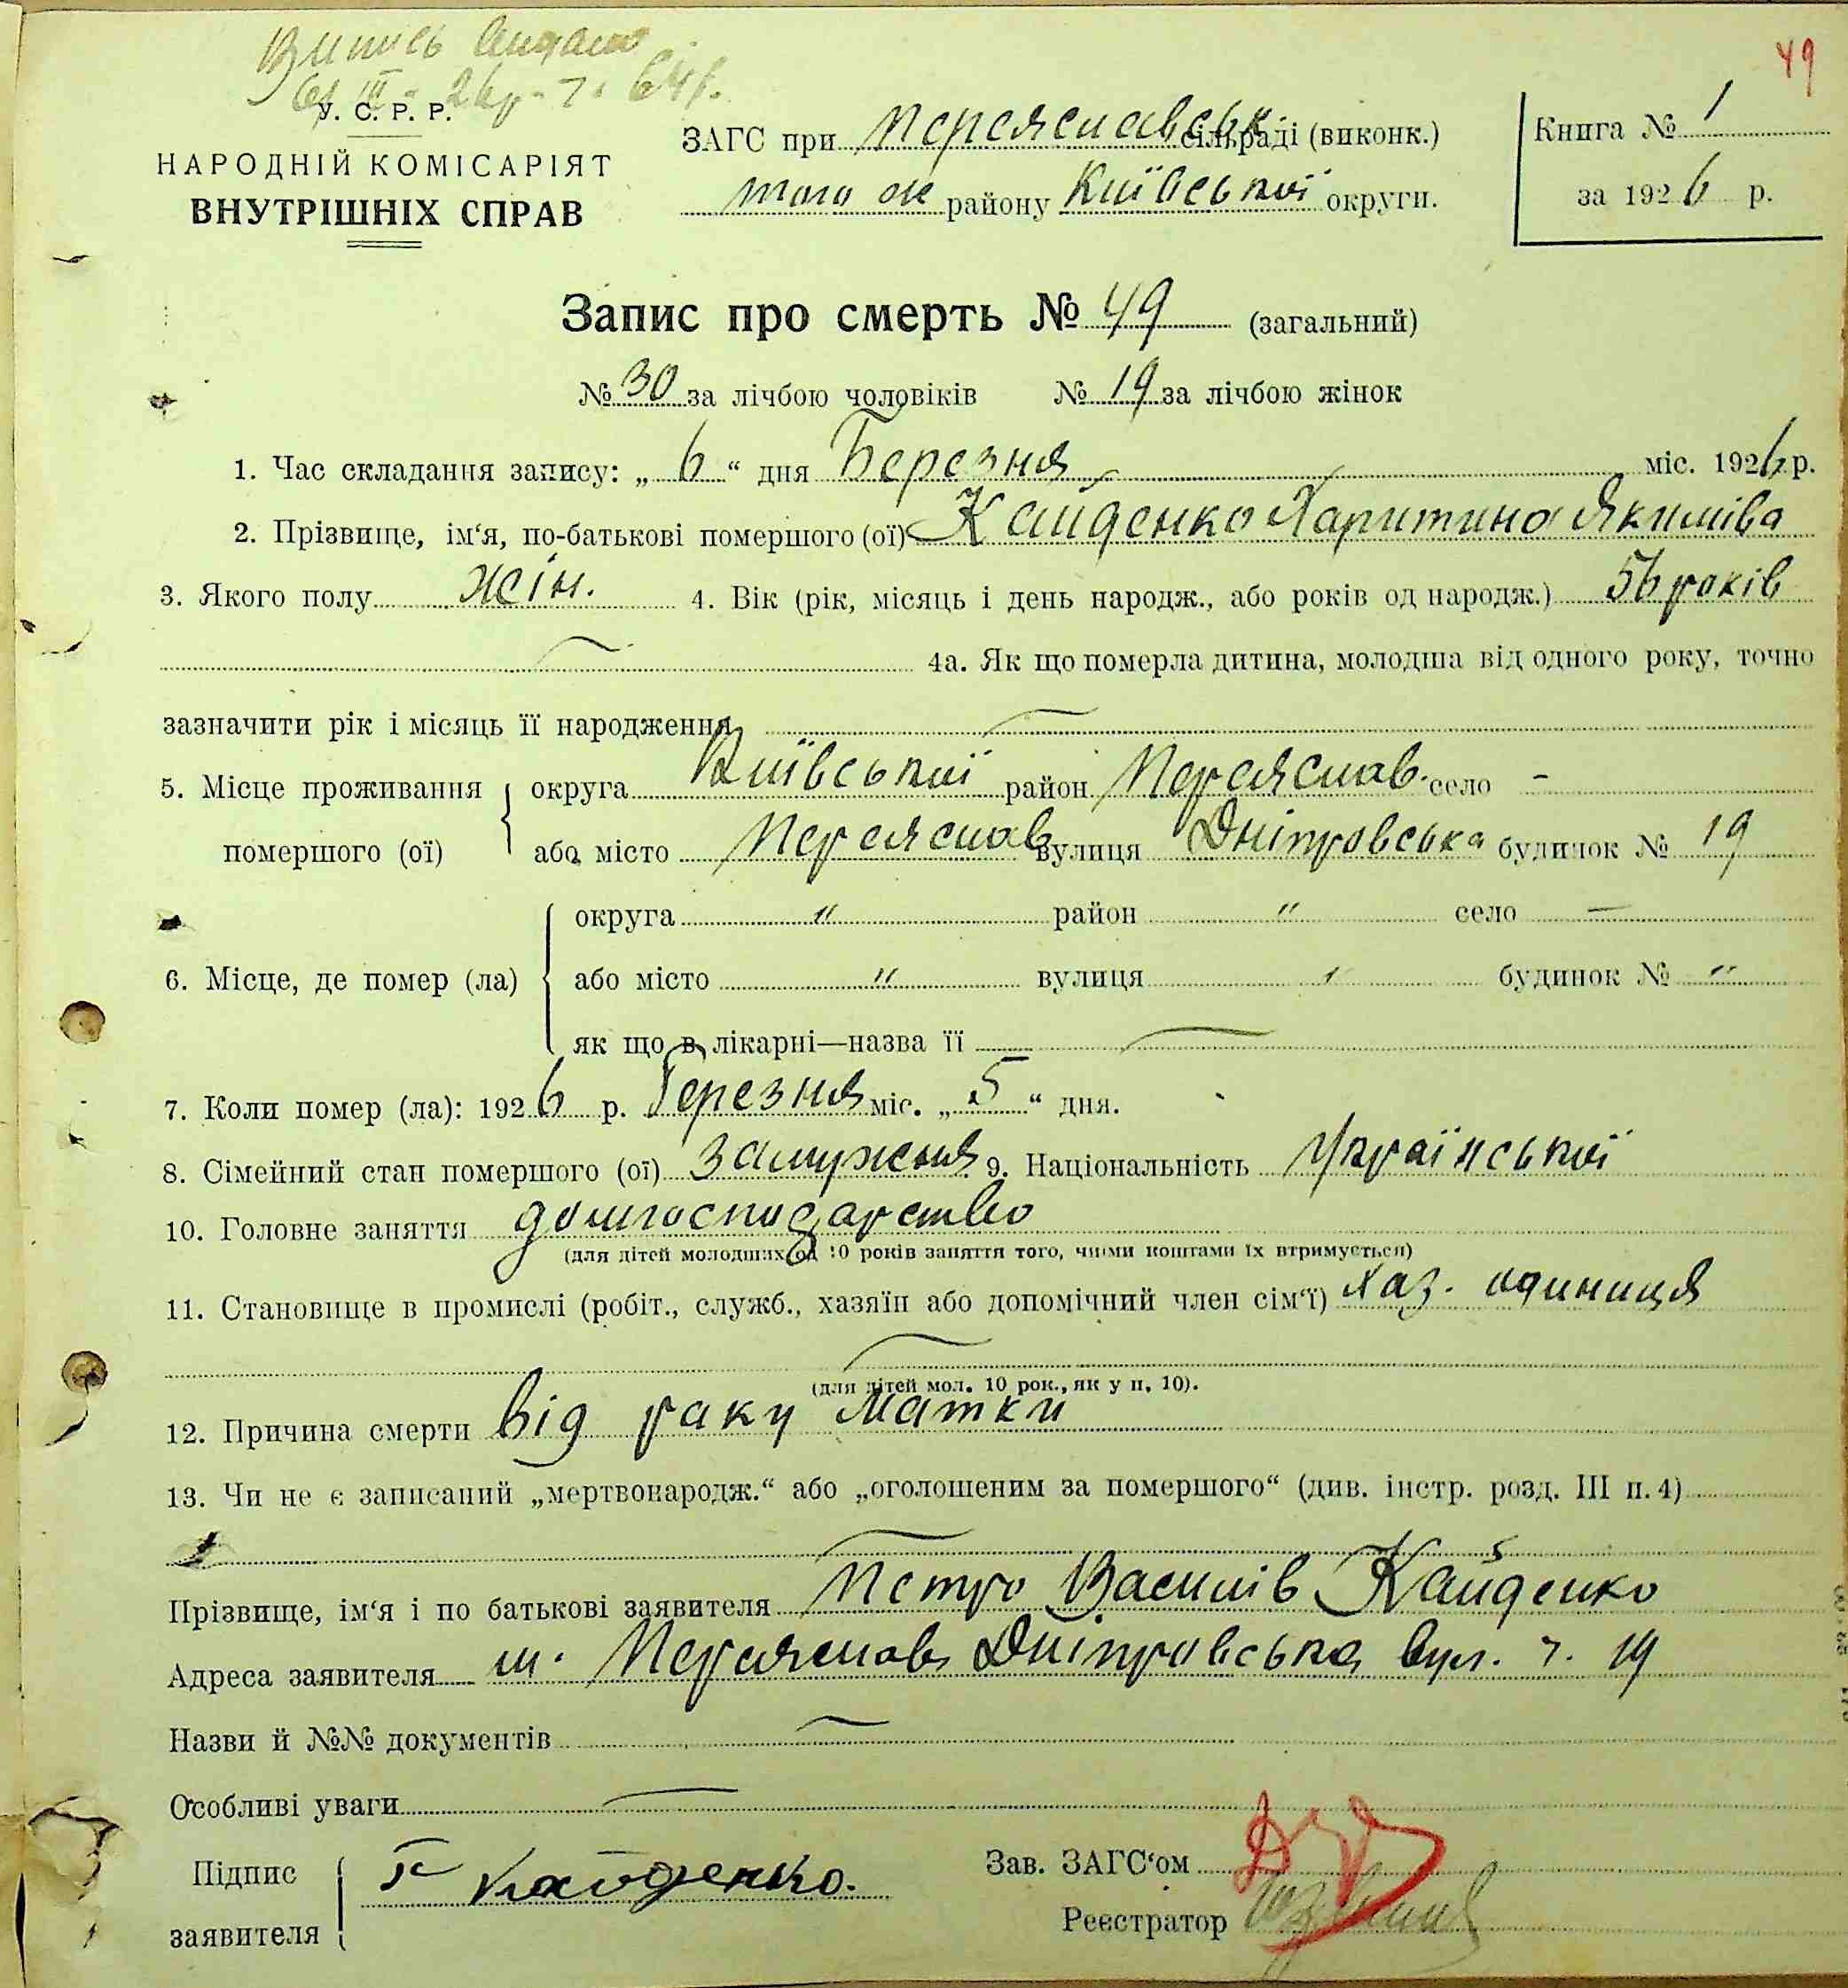 Випись видано
У. С. Р. Р.
НАРОДНІЙ КОМІСАРІЯТ
ВНУТРІШНІХ СПРАВ
ЗАГС при Переяславськ. сільраді (виконк.)
того ж району Київської округи.
49
Книга № 1
за 1926 р.
Запис про смерть № 49 (загальний)
№ 30 за лічбою чоловіків № 19 за лічбою жінок
1. Час складання запису: „ 6 “ дня Березня міс. 1926 р.
2. Прізвище, ім‘я, по-батькові помершого (ої) Кайденко Харитина Якимівa
3. Якого полу жін. 4. Вік (рік, місяць і день народж., або років од народж.) 56 років
4а. Як що померла дитина, молодша від одного року, точно
зазначити рік і місяць її народження
5. Місце проживання помершого (ої)
округа Київської район Переяслав. село -
або місто Переяслав вулиця Дніпровська будинок № 19
6. Місце, де помер (ла)
округа " район " село —
або місто " вулиця " будинок № "
як що в лікарні—назва її
7. Коли помер (ла): 1926 р. Березня міс. „ 5 “ дня.
8. Сімейний стан помершого (ої) замужня 9. Національність Української
10. Головне заняття домгосподарство
(для дітей молодших од 10 років заняття того, чиїми коштами їх втримується)
11. Становище в промислі (робіт., служб., хазяїн або допомічний член сім‘ї) Хаз. одиниця
(для дітей мол. 10 рок., як у п. 10).
12. Причина смерти від раку матки
13. Чи не є записаний „мертвонародж.“ або „оголошеним за помершого“ (див. інстр. розд. III п. 4)
Прізвище, ім‘я і по батькові заявителя Петро Василів Кайденко
Адреса заявителя м. Переяслав Дніпровська вул. ч. 19
Назви й №№ документів
Особливі уваги
Підпис заявителя Кайденко.
Зав. ЗАГС‘ом
Реєстратор